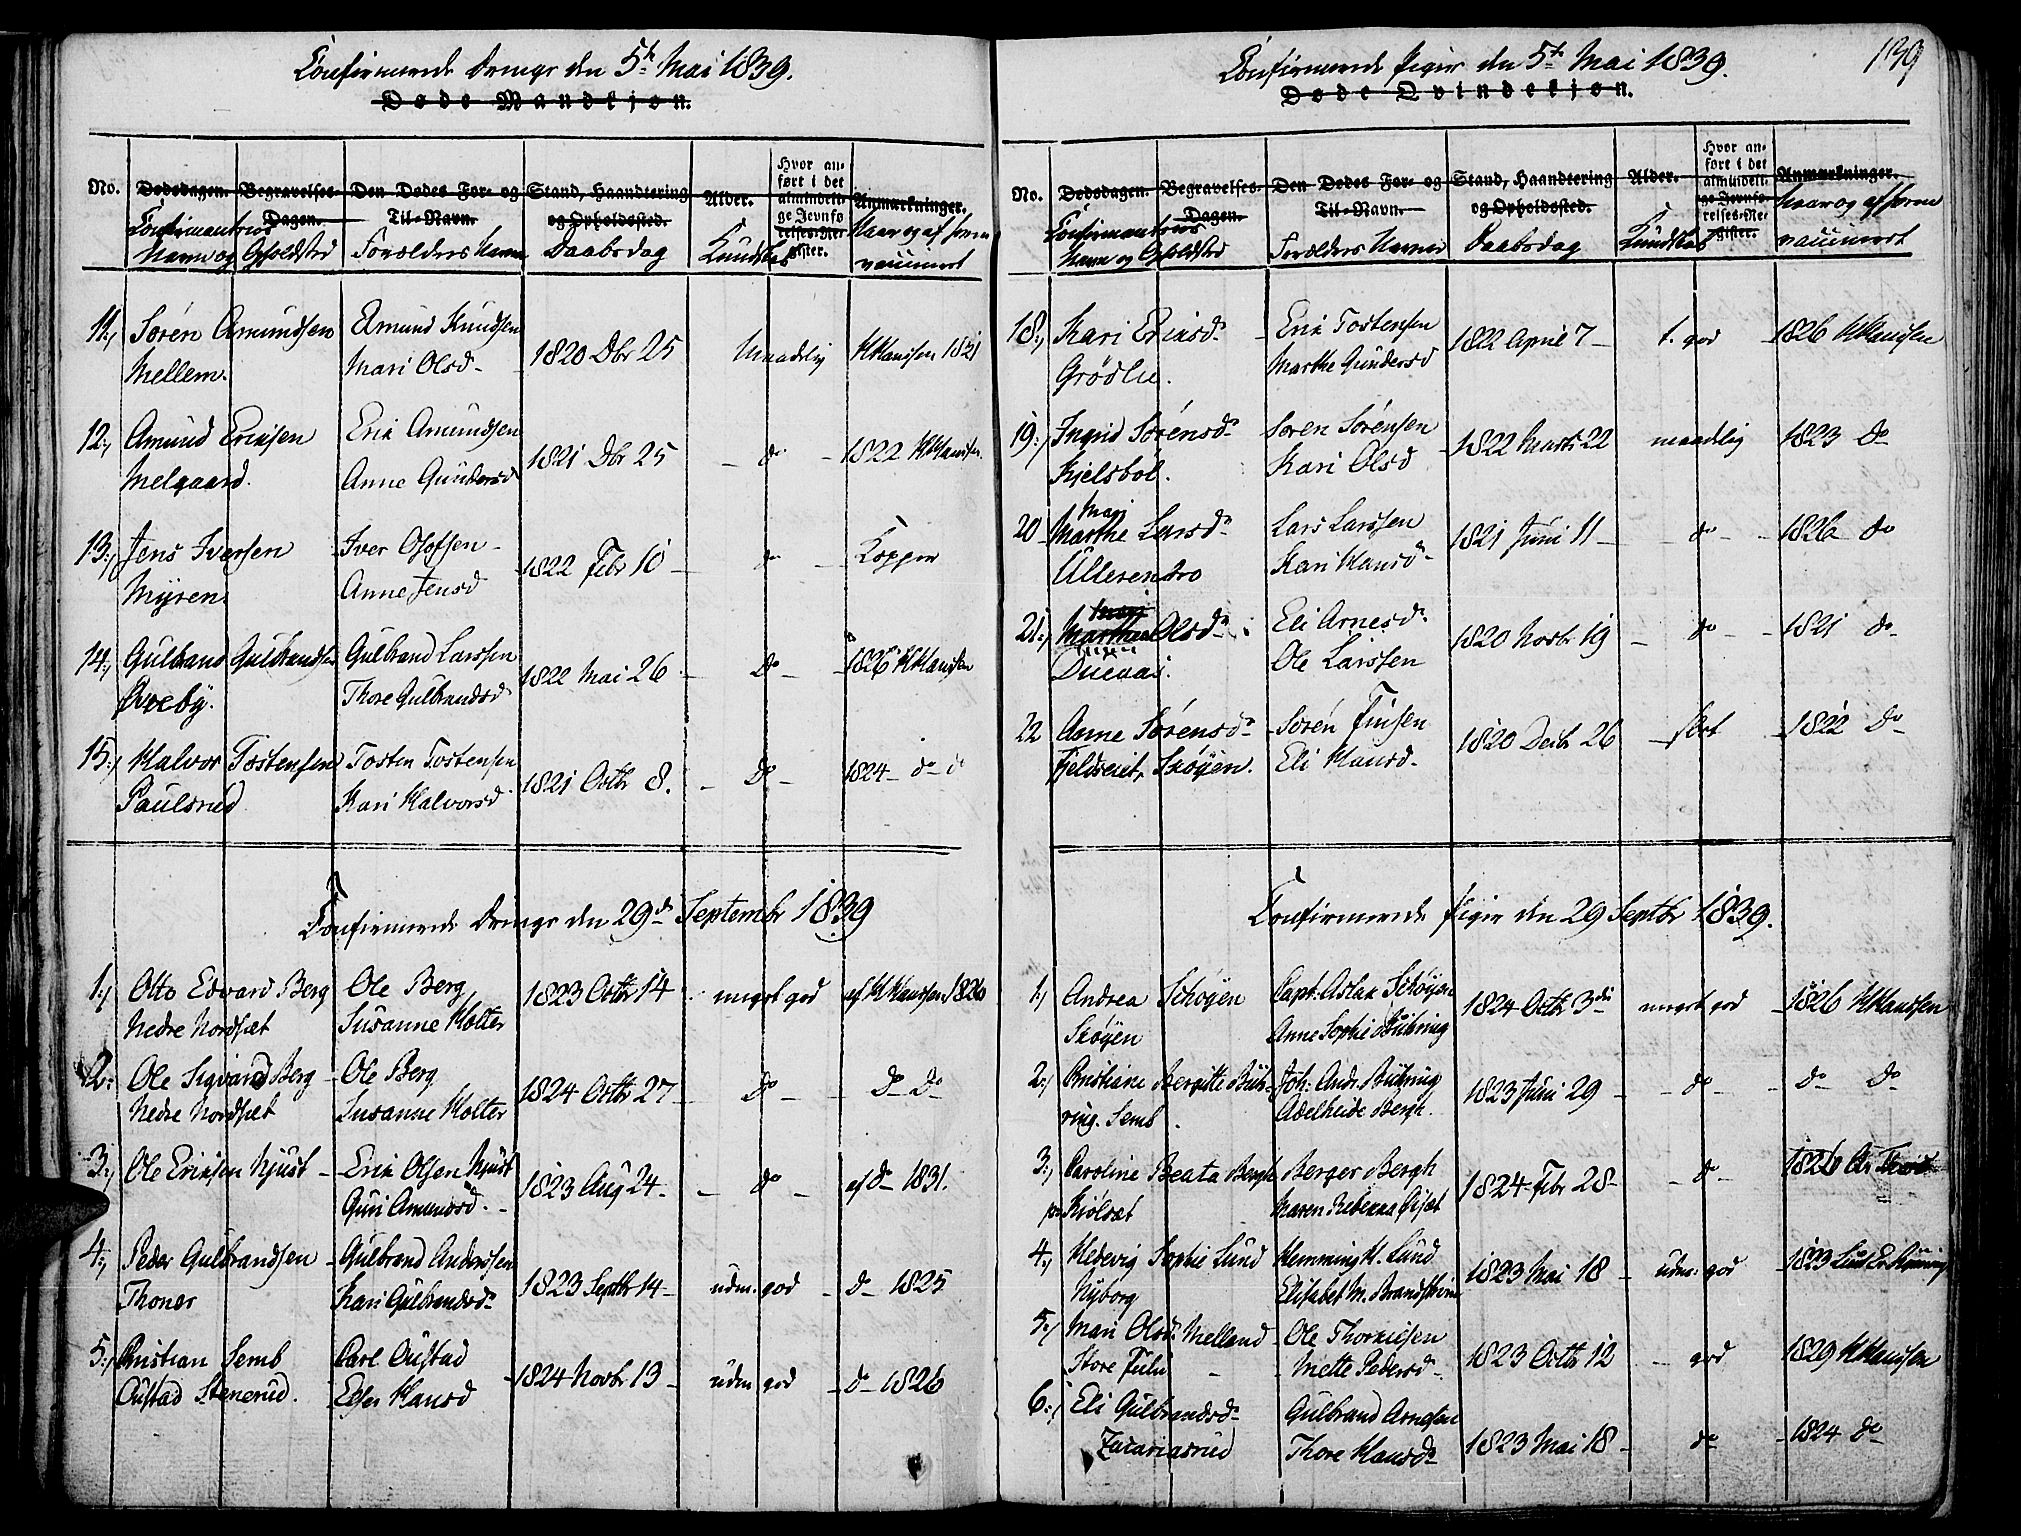 Confirmerede Drenge den 5te Mai 1839.
Døde Mandkjøn.
No. Dødsdagen. Begravelses-Dagen. Den Dødes For- og Til-Navn. Stand, Haandtering og Opholdssted. Alder. Hvor anført i det almindelige Jevnførelses-Register. Anmærkninger.
Confirmantens Navn og Opholdsted Forældres Navne Daabsdag Kundskab Naar og af hvem vaccineret
11:, Søren Amundsen Amund Knudsen
Mellem. Mari Olsd 1820 Dbr 25 Maadelig H Hansen 1821
12:, Amund Eriksen Erik Amundsen
Melgaard. Anne Gundersd 1821 Dbr 25 - do - 1822 H Hansen
13:, Jens Iversen Iver Olofsen
Myren Anne Jensd 1822 Febr 10 - do - Kopper
14:, Gulbrand Gulbrandsen Gulbrand Larssen
Øveby. Thore Gulbrandsd 1822 Mai 26 - do - 1826 H Hansen
15:, Halvor Tostensen Tosten Tostensen
Paulsrud Kari Halvorsd 1821 Octbr 8. - do - 1824 - do - do
Confirmerede Drenge den 29de Septembr 1839
1:, Otto Edvard Berg Ole Berg
Nedre Nordsæt Susanne Holter 1823 Octbr 14 meget god af H Hansen 1826
2: Ole Sigvard Berg Ole Berg
Nedre Nordsæt Susanne Holter 1824 Octbr 27 - do - do do
3:, Ole Eriksen Njust Erik Olsen Njust
Guri Amundsd. 1823 Aug 24 - do - af do 1831.
4:, Peder Gulbrandsen Gulbrand Anderssen
Thonær Kari Gulbrandsd 1823 Septbr 14 udm. god do 1825
5:, Christian Semb Carl Oustad
Oustad Stenerud. Hansd 1824 Novbr 13 udm god do 1826
139
Confirmerede Piger den 5te Mai 1839.
Døde Qvindekjøn.
No. Dødsdagen. Begravelses-Dagen. Den Dødes For- og Til-Navn. Stand, Haandtering og Opholdssted. Alder. Hvor anført i det almindelige Jevnførelses-Register. Anmærkninger.
Confirmantens Navn og Opholdsted Forældres Navne Daabsdag Kundskab Naar og af hvem vaccineret
18:, Kari Eriksd Erik Tostensen
Grødlie. Marthe Gundersd 1822 April 7 t. god 1826 H Hansen
19:, Ingrid Sørensd Søren Sørensen
Kjelsbøl. Kari Olsd 1822 Marts 22 maadelig 1823 do
20 Mari
Marthe Larsd Lars Larssen
Ulleren Kari Hansd 1821 Juni 11 - do - 1826 do
21:, Mari
Marthea Olsd Eli Arnesd
Ole Larssen 1820 Novbr 19 - do - 1821 do
22 Anne Sørensd Søren Finsen
Fjeldseiet, Skøyen. Eli Hansd 1820 Decbr 26 slet 1822 do
Confirmerede Piger den 29 Septbr 1839.
1:, Andrea Schøyen Capt: Aslak Schøyen
Skøyen Anne Sophie Bühring 1824 Octbr 3die meget god 1826 H Hansen
2:, Christiane Bergitte Büh- Joh: Andr. Bühring
ring. Semb. Adelheide Bergh. 1823 Juni 29 - do - do do
3:, Caroline Beata Bergh Berger Bergh
Kiølsæt Maren Rebekka 1824 Febr 28 - do - 1826
4:, Hedevig Sophie Lund Hemming H. Lund
Nyborg Elisabet M. 1823 Mai 18 udm. god 1823
5:, Mari Olsd: Melland Ole Thorkilsen
Store Fulu Mette Pedersd 1823 Octbr 12 - god 1829 H Hansen
6:, Eli Gulbrandsd Gulbrand Arnesen
Zacariasrud Thore Hansd 1823 Mai 18 - do - 1824 do